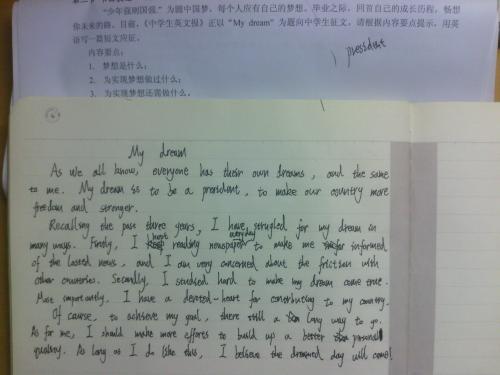 “少年强则国强。”为圆中国梦，每个人应有自己的梦想。毕业之际，回首自己的成长历程，畅想
你未来的路。目前，《中学生英文报》正以“My dream”为题向中学生征文，请根据内容要点提示，用英
语写一篇短文应征。
内容要点：
1. 梦想是什么；
2. 为实现梦想做过什么；
3. 为实现梦想还需做什么。
president
My dream
As we all know, everyone has their own dreams, and the same
to me. My dream is to be a president, to make our country more
freedom and stronger.
Recalling the past three years, I have strugled for my dream in
many ways. Firstly, I kept reading newspaper everyday to make me informed
of the lasted news, and I am very concerned about the friction with
other countries. Secondly, I studied hard to make my dream come true.
Most importantly, I have a devoted-heart for contributing to my country.
Of course, to achieve my goal, there still a long way to go.
As for me, I should make more efforts to build up a better personal
quality. As long as I do like this, I believe the dreamed day will come!